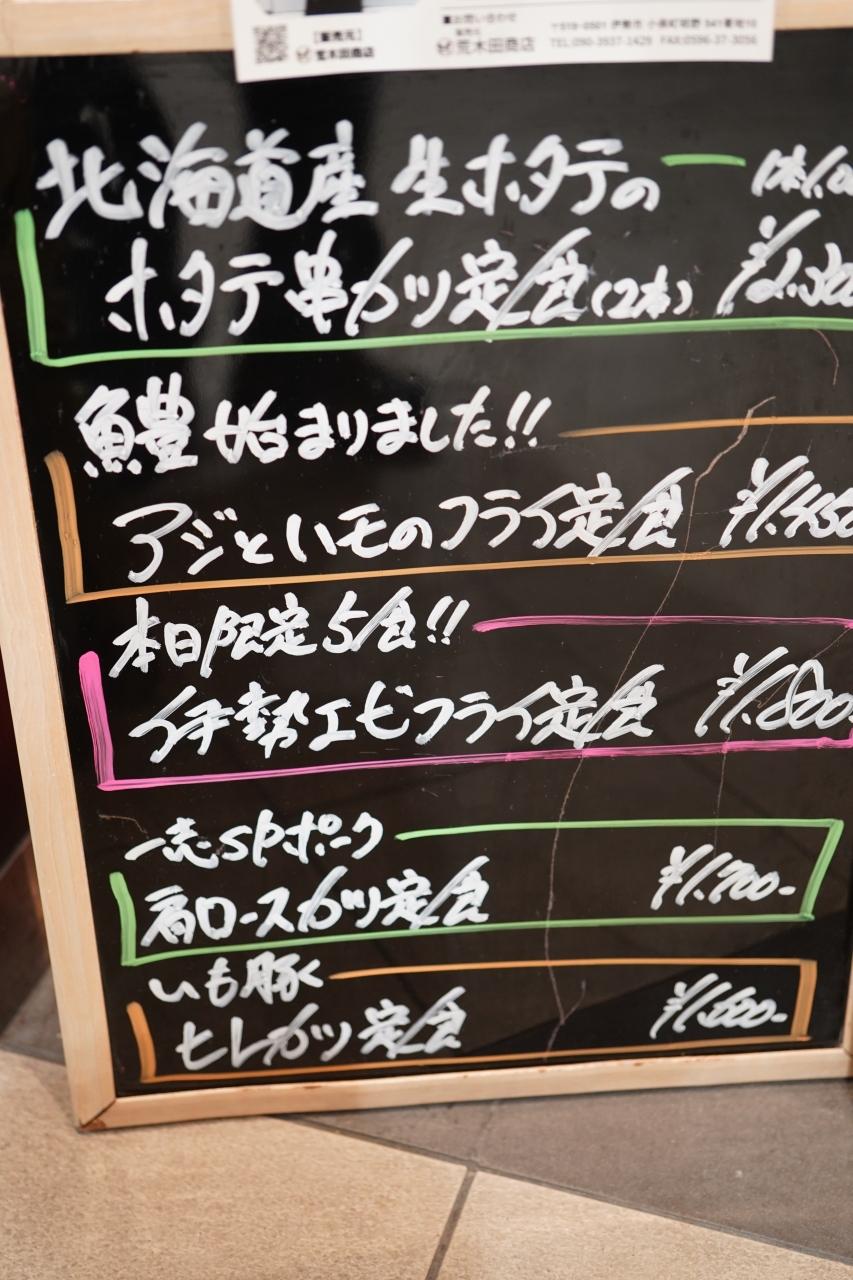 【販売元】
荒木田商店
■お問い合わせ
販売元
荒木田商店
〒519-0501 伊勢市 小俣町明野 541番地10
TEL:090-3937-1429 FAX:0596-37-3056
北海道産 生ホタテの
ホタテ串カツ定食(2本) ¥2,300
鱧始まりました!!
アジとハモのフライ定食 ¥1,450
本日限定5食!!
伊勢エビフライ定食 ¥1,800-
一志SPポーク
肩ロースカツ定食 ¥1,700-
いも豚
ヒレカツ定食